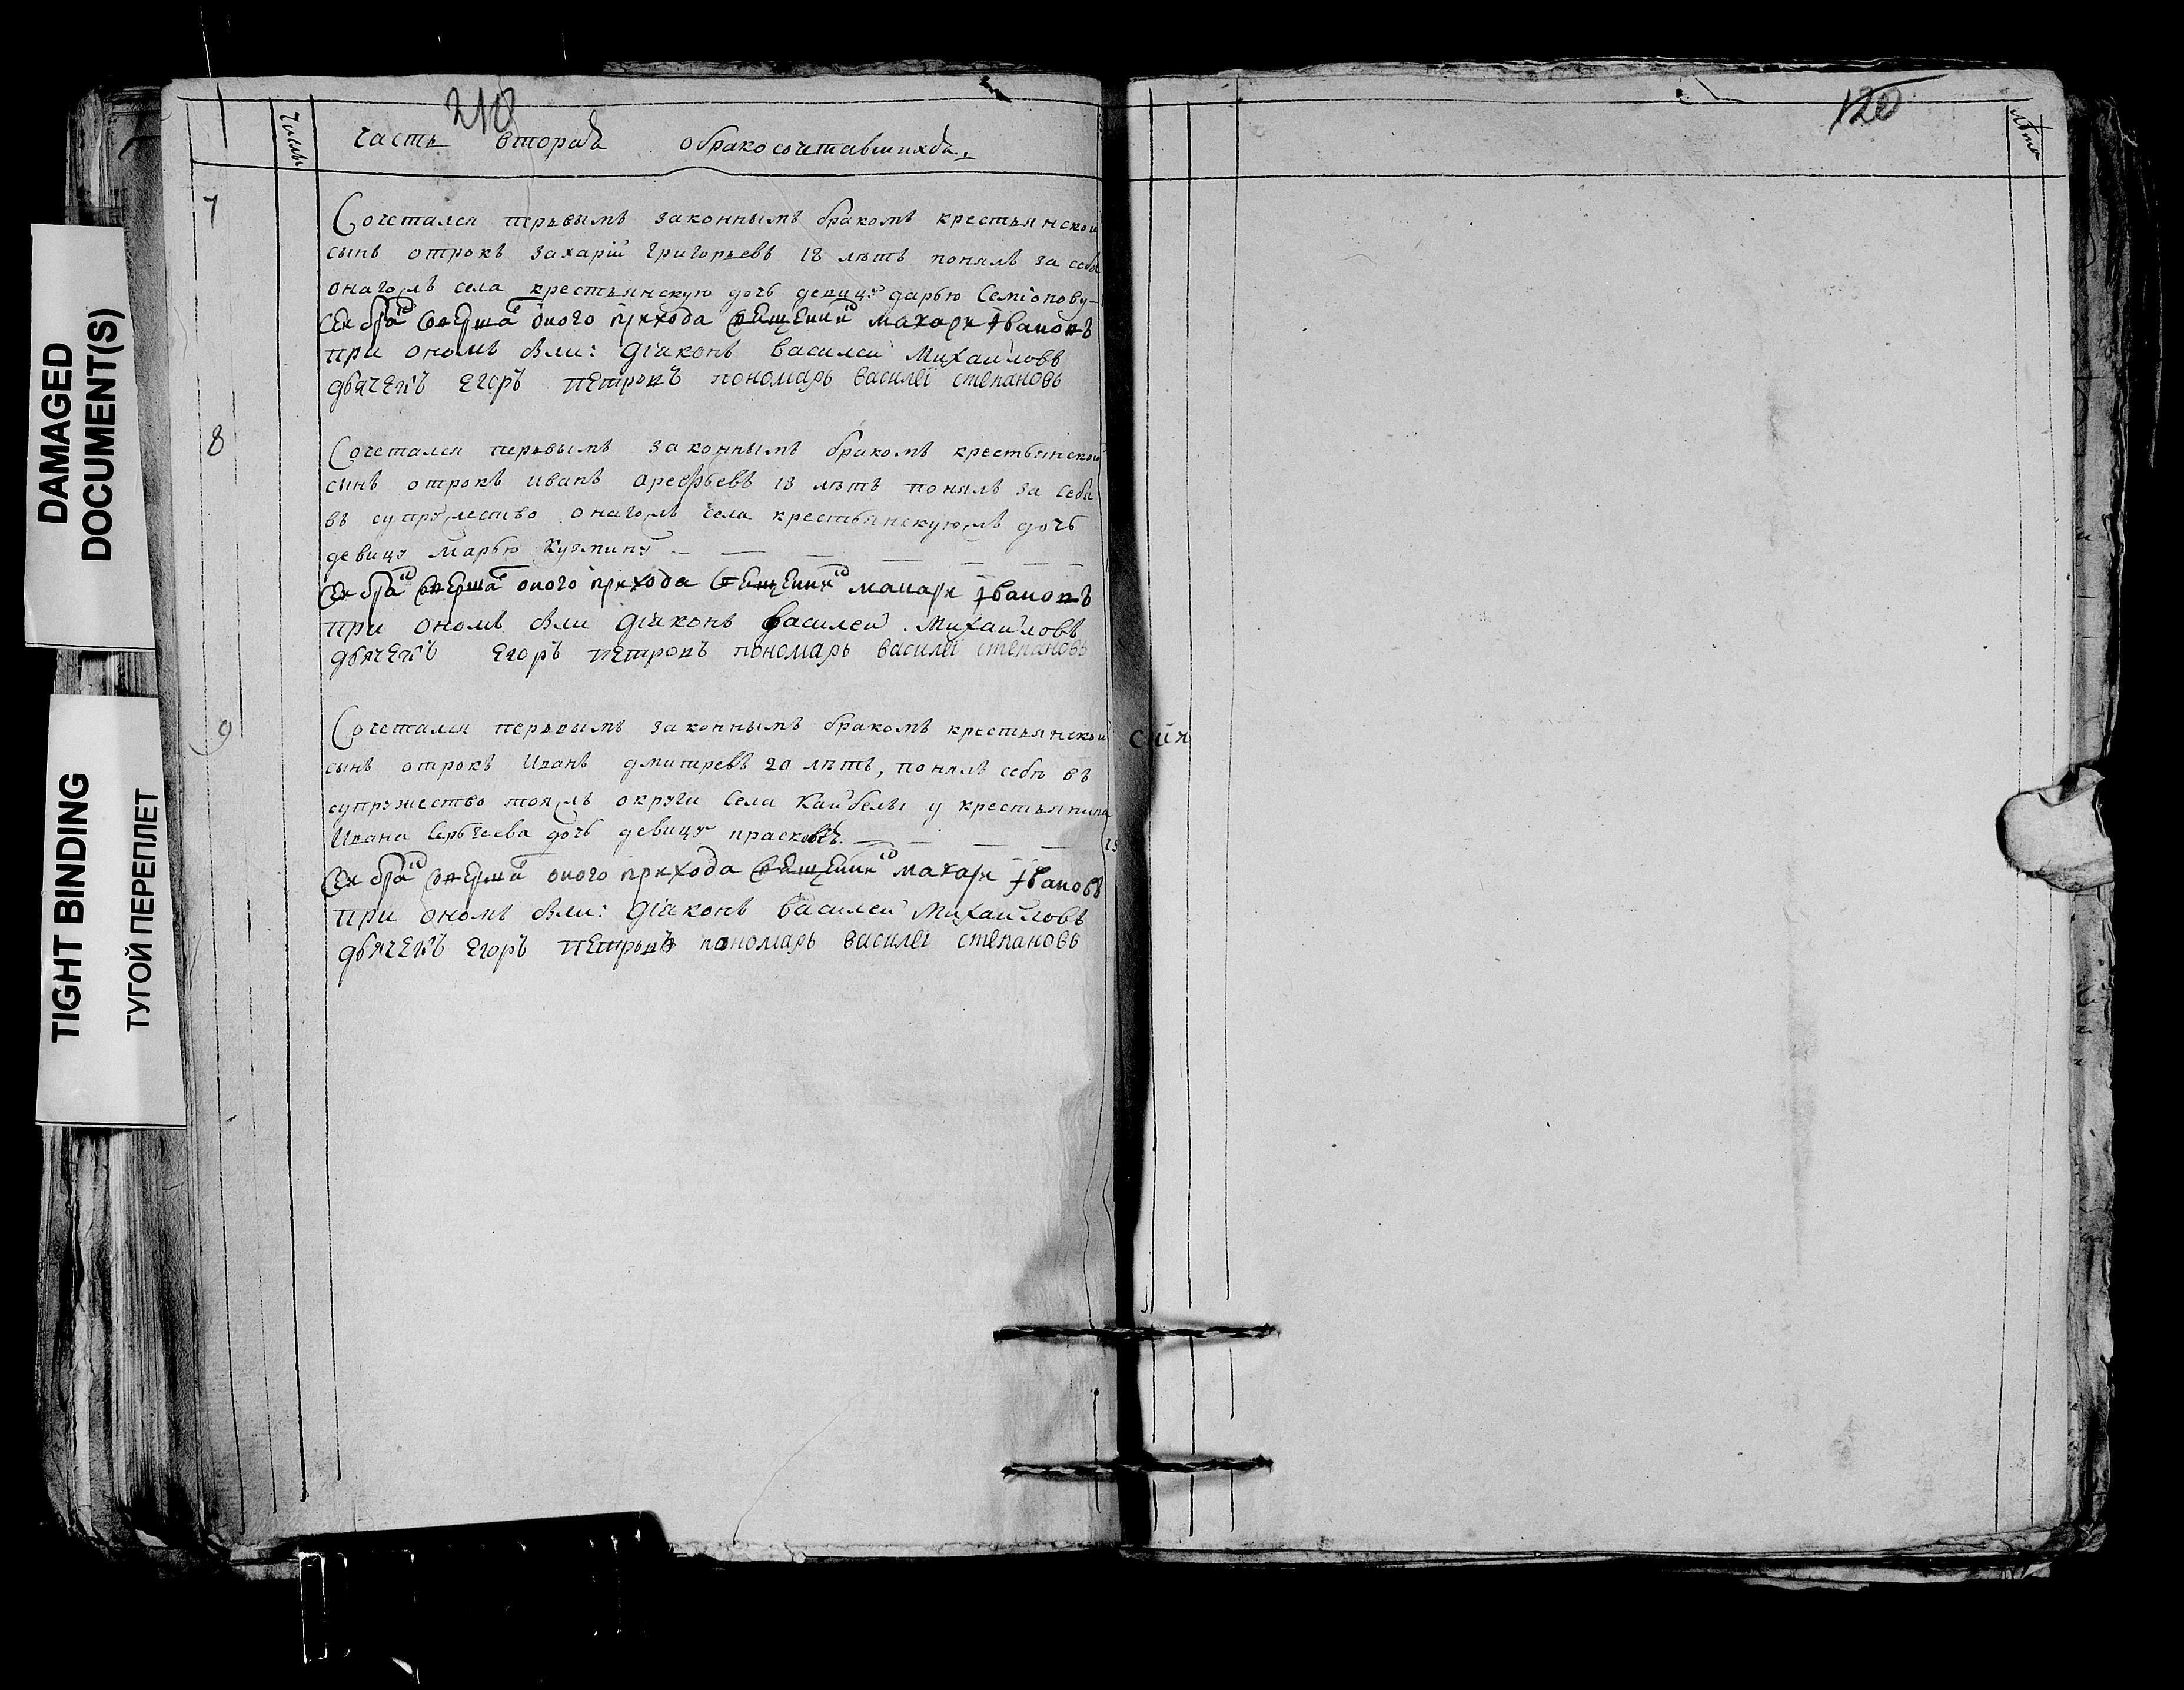 218
числы
часть вторая о бракосочетавшихся
7
Сочетался первымъ законнымъ бракомъ крестьянской
сынъ отрокъ Захарїй Григорьевъ 18 лѣтъ понялъ за себя
онагожъ села крестьянскую дочь девицу дарью Семїонову
Сеи бракъ совершалъ оного прихода священникъ макари Iвановъ
при ономъ были: дїаконъ Василеи Михаиловъ
дьячекъ Егоръ петровъ пономарь василеї степановъ
8
Сочетался первымъ законнымъ бракомъ крестьянской
сынъ отрокъ иванъ арефьевъ 18 лѣтъ понялъ за себя
въ супружество онагожъ села крестьянскуюжъ дочь
девицу марью кузмину
Сеи бракъ совершалъ оного прихода священникъ макари Iвановъ
при ономъ были дїаконъ василеи Михаиловъ
дьячекъ Егоръ петровъ пономарь василеї степановъ
9
Сочетался первымъ законнымъ бракомъ крестьянской
сынъ отрокъ Иванъ дмитревъ 20 лѣтъ, понялъ себѣ въ
супружество тояжъ округи села Кайбелы у крестьянина
Ивана Сергеева дочь девицу прасковью
Сеи бракъ совершалъ оного прихода священникъ макари Iвановъ
при ономъ были: дїаконъ василеи Михаиловъ
дьячекъ Егоръ петровъ пономарь василеї степановъ
120
лѣта
сия
DAMAGED
DOCUMENT(S)
TIGHT BINDING
ТУГОЙ ПЕРЕПЛЕТ